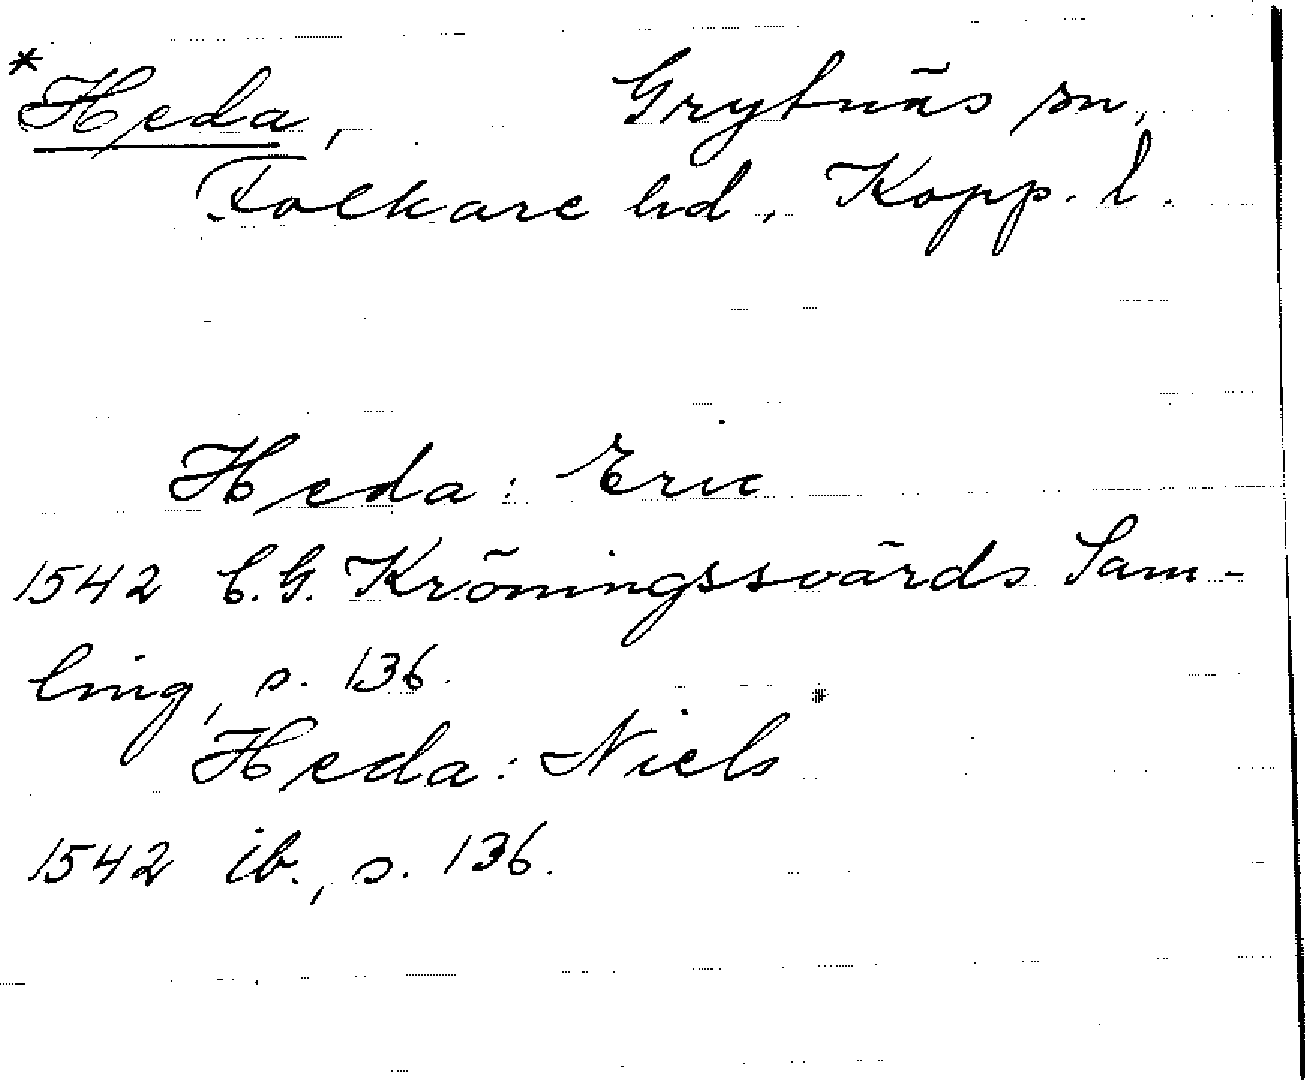 *Heda, Grytnäs sn,
Folkare hd, Kopp. l.
Heda: Eric
1542 C.G. Kröningssvärds Sam-
ling, s. 136.
Heda: Niels
1542 ib., s. 136.